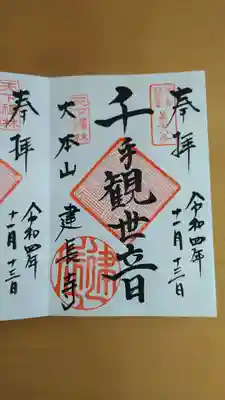 奉拝
令和四年
十一月十三日
千手観世音
大本山
建長寺
奉拝
令和四年
十一月十三日